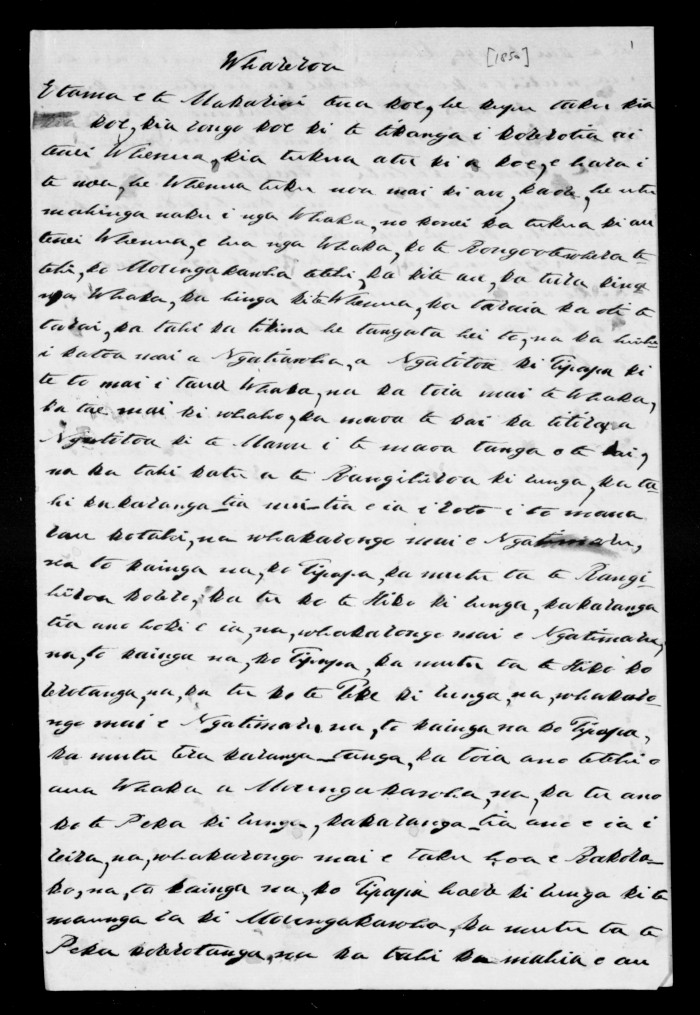 [1850]
1
Whareroa
E tama e te Makarini tena koe, he kupu taku kia
koe, kia rongo koe ki te tikanga i korerotia ai
tenei Whenua, kia tukua atu ki a koe, e hara i
te noa, he Whenua tuku noa mai ki au, kaore, he utu
mahinga naku i nga Whaka, no konei ka tukua ki au
tenei Whenua, e rua nga Whaka, ko te Rongo
tehi, ko Moungakawha tetehi, ka kite au, ka tuku
nga Whaka, ka hinga ki te Whenua, ka taraia ka oti te
tarai, ka tahi ka tikina he tangata hei to, na ka huihu
i katoa mai a Ngatiawha, a Ngatitoa ki Tipapa ki
te to mai i taua Whaka, na ka toia mai te Whaka,
ka tae mai ki whaho, ka maoa te kai ka titiro a
Ngatitoa ki te Mano i te maoa tanga o te kai,
na ka tahi ka tu a te Rangihiroa ki lunga, ka ta-
hi ka karanga-tia mai-tia e ia i roto i to mana
rau kotahi, na whakarongo mai e Ngatimaru,
na to kainga na, ko Tipapa, ka mutu ta te Rangi-
hiroa korero, ka tu ko te Hiko ki lunga, ka karanga
tia ano hoki e ia, na, whakarongo mai e Ngatimaru,
na, to kainga na, ko Tipapa, ka mutu ta te Hiko ko
rerotanga, na, ka tu ko te Peke ki lunga, na, whakaro-
ngo mai e Ngatimaru, na, to kainga na ko Tipapa,
ka mutu tera karanga-tanga, ka toia ano tetehi o
aua Whaka a Moungakawha, na, ka tu ano
ko te Peka ki lunga, ka karanga-tia ano e ia i
reira, na, whakarongo mai e taku hoa e Rakora-
ko, na, to kainga na, ko Tipapa haere ki lunga ki te
maunga ra ki Moungakawha, ka mutu ta te
Peka korerotanga, na ka tahi ka mahia e au